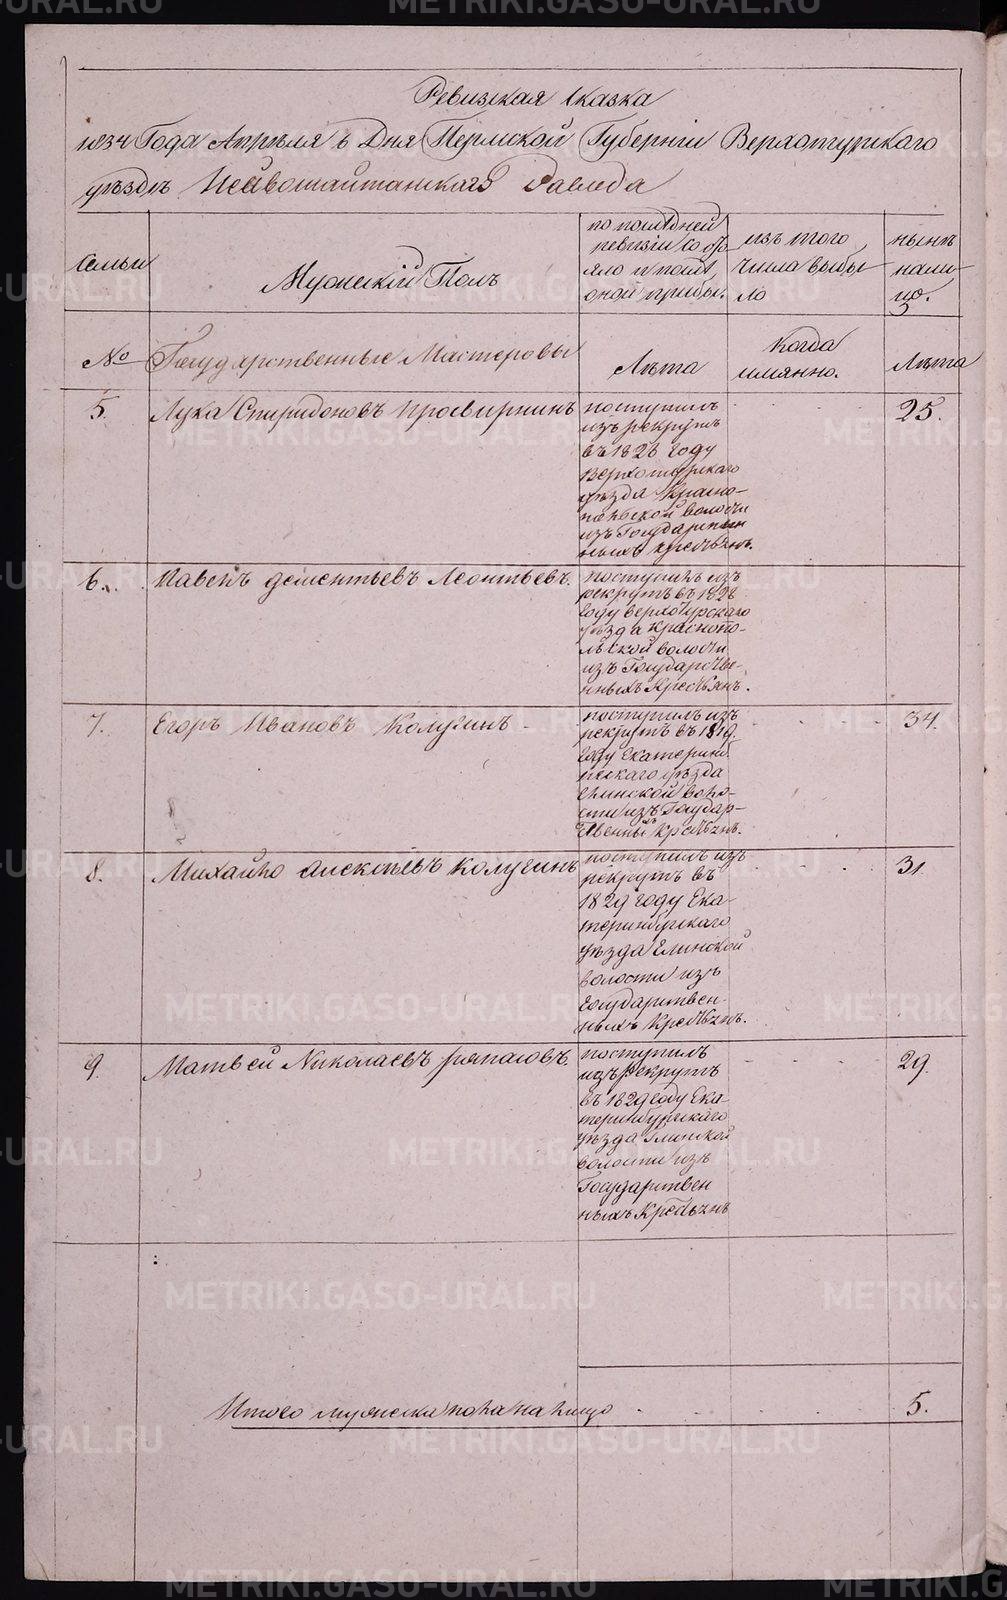 Ревизская Сказка
1834 Года Апреля 6 Дня Пермской Губернiи Верхотурскаго
уезде Нейвошайтанскаго Завода
семьи
Мужескiй Полъ
по последней
ревизiи состо
яло и после
оной прибы.
изъ того
числа выбы
ло
ныне
нали
цо.
№
Государственные Мастеровы
Лѣта
Когда
имянно.
Лѣта
5.
Лука Спиридоновъ Просвирнинъ
поступилъ
изъ рекрутъ
въ 1828 году
Верхотурскаго
уѣзда Красно-
польской волости
изъ Государствен
ныхъ крестьянъ.
25.
6.
Павелъ дементьевъ Леонтьевъ.
поступилъ изъ
рекрутъ въ 1828
году верхотурскаго
уѣзда краснопо-
льской волости
изъ Государстве-
нныхъ Крестьянъ.
7.
Егоръ Ивановъ Колугинъ
поступилъ изъ
рекрутъ въ 1819.
году Екатеринб
скаго уѣзда
воло-
сти изъ Государ-
ственныхъ крестьянъ.
34.
8.
Михайло алексѣевъ колугинъ
поступилъ изъ
рекрутъ въ
1829 году Ека-
теринбурскаго
уѣзда Елинской
волости изъ
Государствен-
ныхъ крестьянъ.
31.
9.
Матвей Николаевъ
поступилъ
изъ рекрутъ
въ 1829 году Ека-
теринбурскаго
уѣзда Глинской
волости изъ
Государствен
ныхъ Крестьянъ
29.
Итого мужеска пола на лицо
5.
METRIKI.GASO-URAL.RU